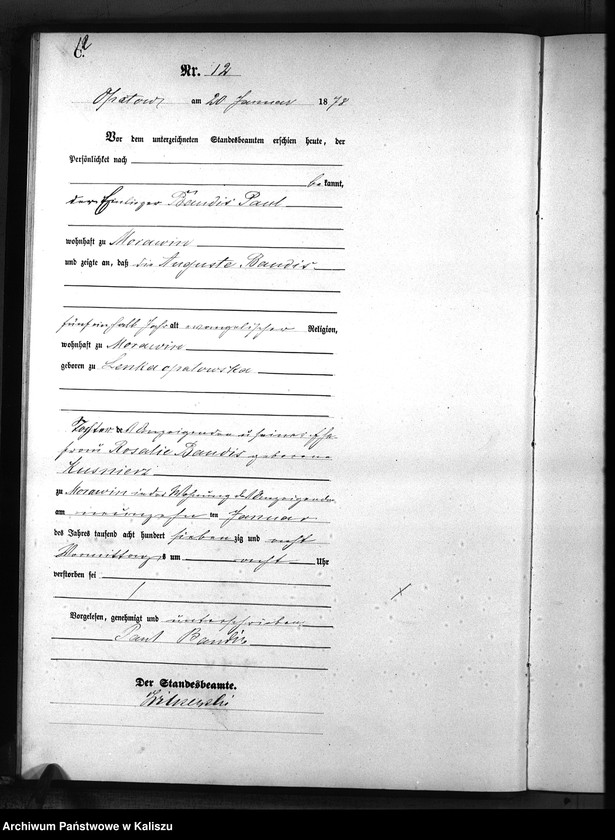 12
C.
Nr. 12
Opatow am 20 Januar 1878
Vor dem unterzeichneten Standesbeamten erschien heute, der
Persönlichkeit nach
bekannt,
der Einlieger Bandis Paul
wohnhaft zu Morawin
und zeigte an, daß die Auguste Bandis
fünfeinhalb Jahr alt evangelischer Religion,
wohnhaft zu Morawin
geboren zu Lenkaopatowska
Tochter des Anzeigenden u seiner Ehe
frau Rosalie Bandis geborene
Kusnierz
zu Morawin in der Wohnung des Anzeigenden
am neunzehn ten Januar
des Jahres tausend acht hundert siebenzig und acht
Vormittags um acht Uhr
verstorben sei
Vorgelesen, genehmigt und unterschrieben
Paul Bandis
Der Standesbeamte.
Archiwum Państwowe w Kaliszu